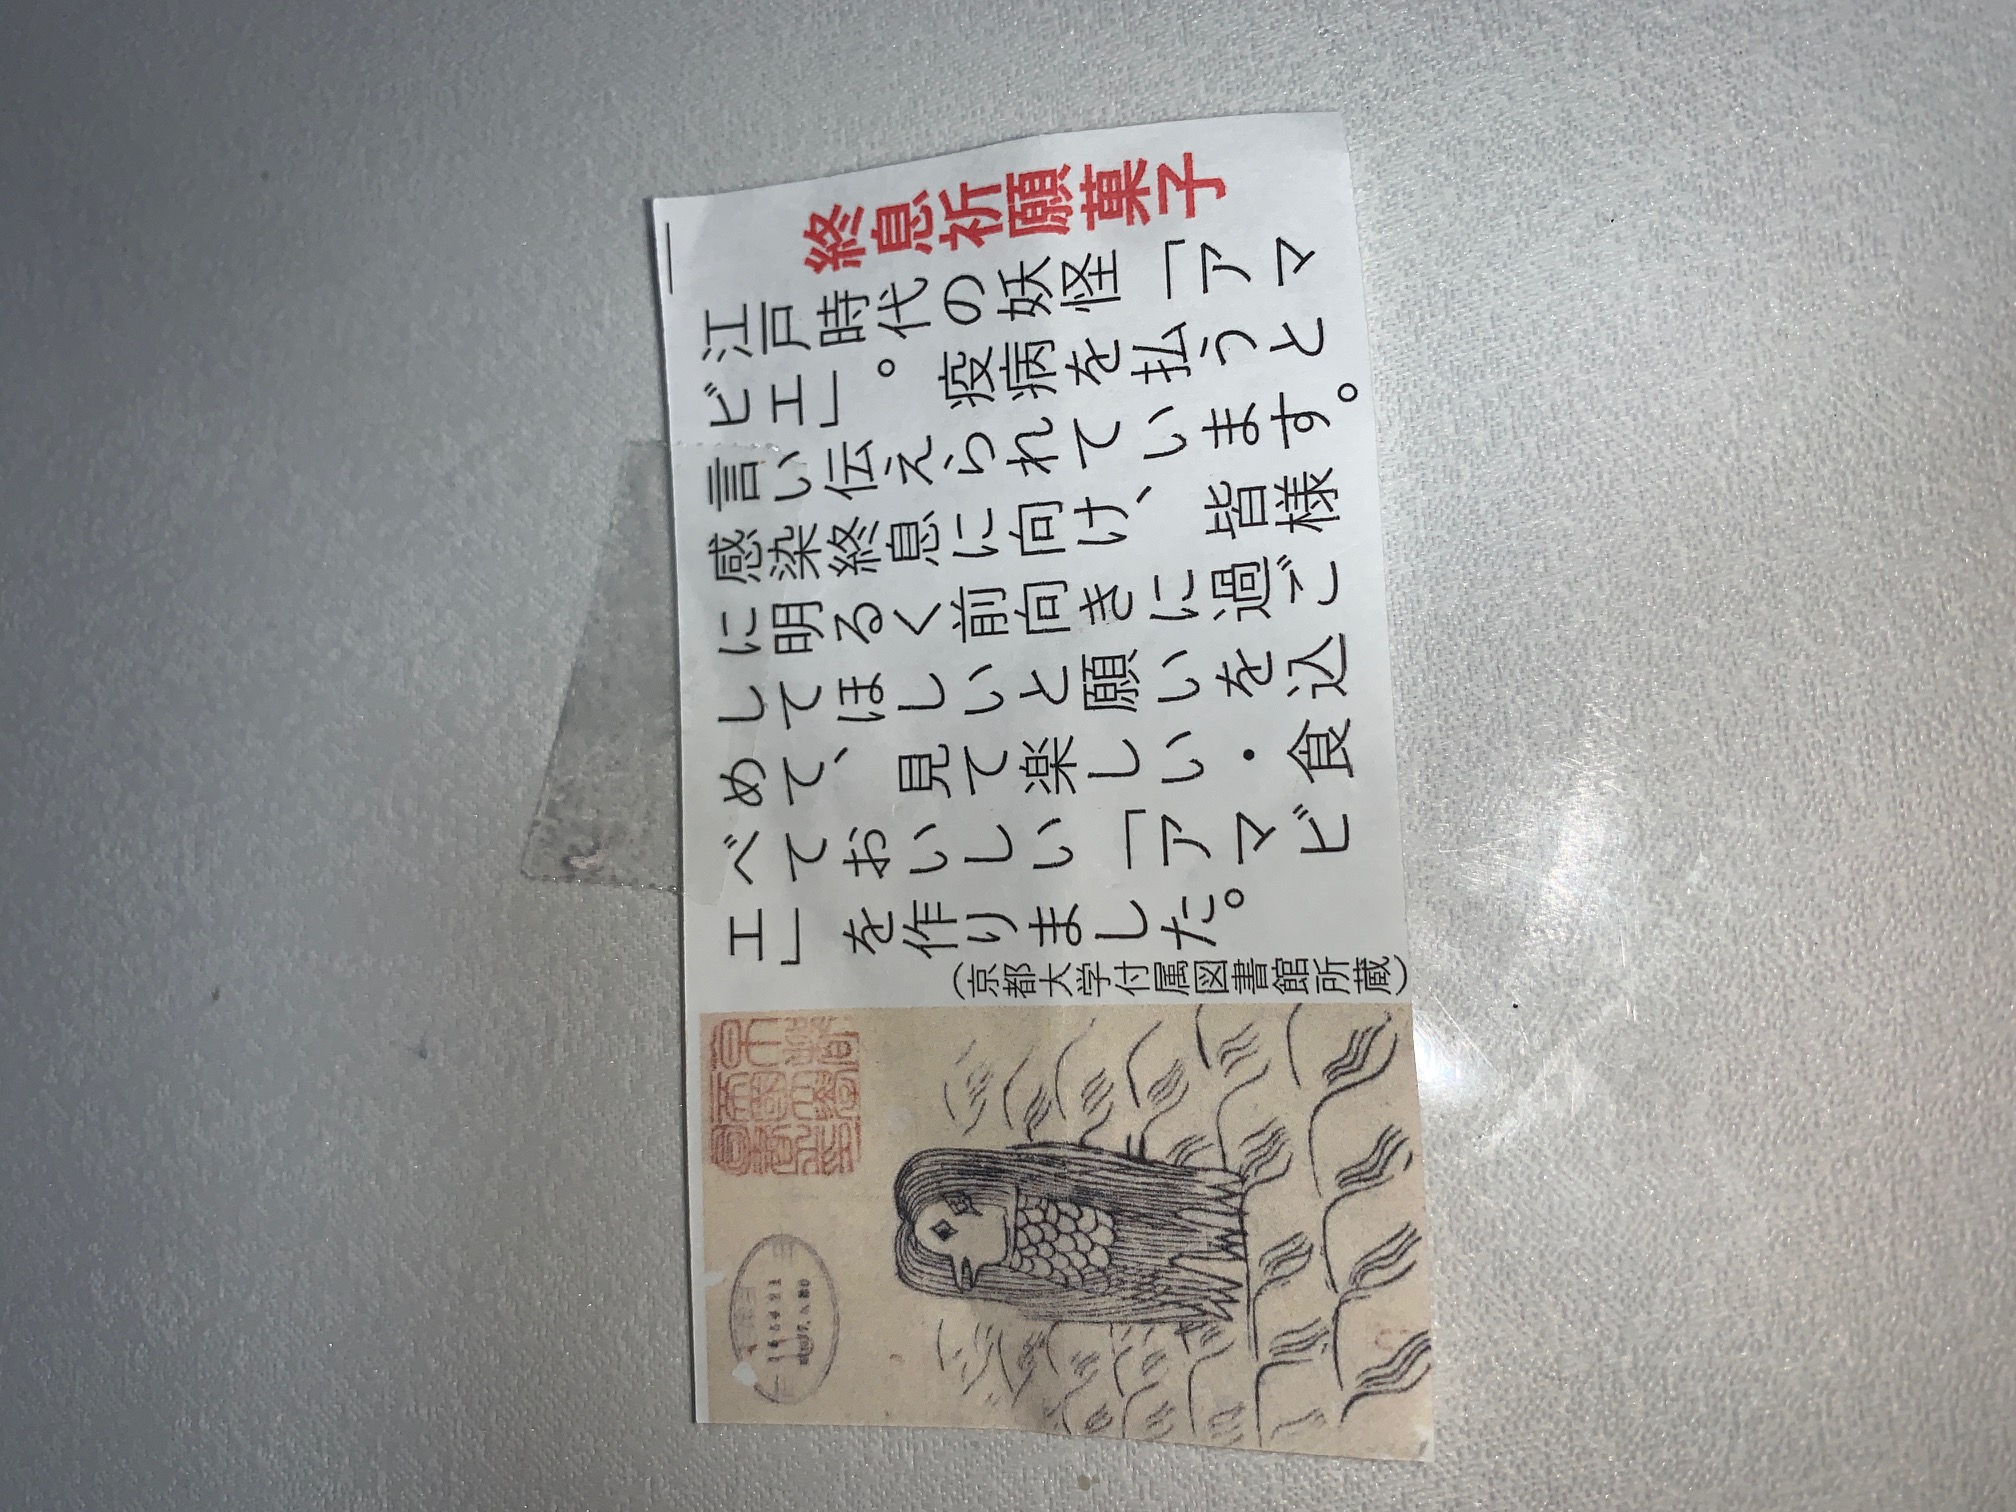 終息祈願菓子
江戸時代の妖怪「アマ
ビエ」。疫病を払うと
言い伝えられています。
感染終息に向け、皆様
に明るく前向きに過ご
してほしいと願いを込
めて、見て楽しい・食
べておいしい「アマビ
エ」を作りました。
（京都大学付属図書館所蔵）